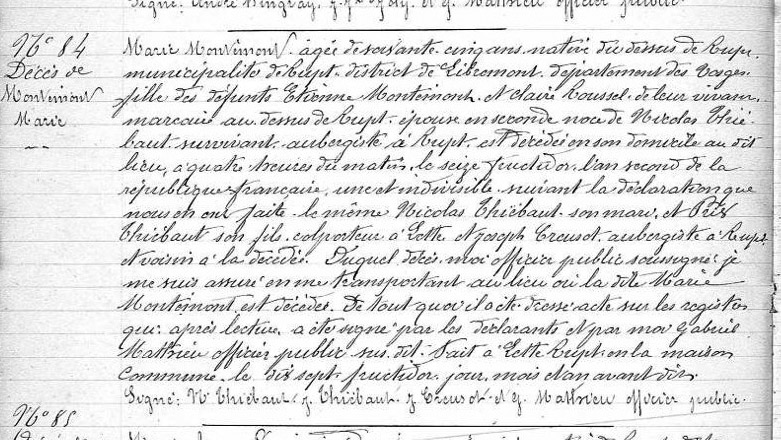 Signé: André Hingray, f. Joly, et g. Mathieu officier public
N° 84
Décès de
Montémont
Marie
Marie Montémont, âgée de soixante cinq ans, native du dessus de Rupt
municipalité de Rupt, district de Libremont, département des Vosges
fille des défunts Etienne Montémont, et Claire Roussel, de leur vivant
marcaire au dessus de Rupt, épouse en seconde noce de Nicolas Thié-
baut survivant, aubergiste à Rupt, est décédée en son domicile au dit
lieu, à quatre heures du matin, le seize fructidor, l'an second de la
république française, une et indivisible suivant la déclaration que
nous en ont faite le même Nicolas Thiébaut son mari, et
Thiébaut son fils, colporteur à Lette, et Joseph Creusot, aubergiste à Rupt
et voisin à la décédée. Duquel décès, moi officier public soussigné je
me suis assuré en me transportant au lieu où la dite Marie
Montémont est décédée. De tout quoi il a été dressé acte sur les registres
qui, après lecture, a été signé par les déclarants et par moi Gabriel
Mathieu officier public sus dit. Fait à Lette Rupt en la maison
commune le dix sept fructidor, jour, mois et an avant dits
Signé: N Thiébaut, f Thiébaut, f Creusot et g. Mathieu officier public.
N° 85